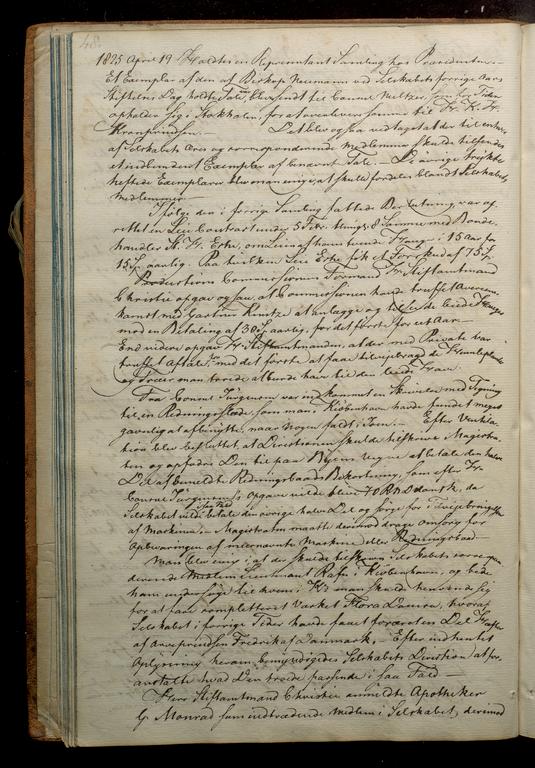 1825 April 19 Holdtes en Repræsentant Samling hos Præsidenten. –
Et Exemplar af den af Biskop Neumann ved Selskabets forrige Aars
Stiftelses Dag holdte Tale, blev sendt til Consul Meltzer, som for Tiden
opholder sig i Stokholm, for at overlevere samme til Hr. K. H.
Kronprindsen. – Det blev og saa vedtaget at der til enhver
af Selskabets Æres og corresponderende medlemmer skulde tilsendes
et indbundet Exemplar af benævnt Tale. – De øvrige trykte
heftede Exemplarer blev man enige, at skulle fordeles blandt Selskabets
Medlemmer
Ifølge den i forrige Samling fattede Beslutning var af
rettet en Leie Contract under 5 Febr. med Bonde
handler H. Fr. Erke, om Leie af hans Hauge i 15 aar for
15 aarlig. Paa hvilken Leie Erke fik et Forskud af 75
Productions Commissionens Formand Hr. Stiftamtmand
Christie opgav og saa, at Commissionen havde truffet Overeens
komst med Gartner Kuntze at anlægge og tilsee de leiede Hauge
mod en Betaling af 30 aarlig, for det første for eet Aar. –
End videre opgav Hr. Stiftamtmanden, at der med Private var
truffet aftale, med det første at faae tilveiebragt de Frugtplanter
og Træer man troede at burde have til den leiede Have.
Fra Consul Jürgensen var indkommet en Skrivelse med Tegning
til en Redningsbaad som man i Kiøbenhavn havde fundet meget
gavnlig at afbenytte, naar nogen faldt i Isen. – Efter
blev besluttet, at Directionen skulde tilskrive Magistra
ten og opfodre Den til paa Byens Vegne at betale den halve
Deel af bemeldte Redningsbaads Bekostning, som efter Hr.
Consul Jürgensens Opgave vilde blive 70 Rbd dansk, da
Selskabet vilde betale den øvrige halve Deel og sørge for Tilveiebringelsen
af Machinen, Magistraten maatte derimod drage Omsorg for
Opbevaringen af meernævnte Machine eller Redningsbaad. –
Man blev enig i, at der skulde tilskrives Selskabets correspon
derende Medlem Lieutnant Rafn i Kiøbenhavn, og bede
ham undersøge til hvem i Kh man skulde henvende sig
for at faae completteret Værket Flora Danica, hvoraf
Selskabet i forrige Tider havde faaet foræret en Deel Hefter
af Arveprindsen Fredrik af Danmark. Efter indhentet
Oplysning herom, bemyndigedes Selskabets Direction at for
anstalte hvad Den troede passende i saa Fald –
Herr Stiftamtmand Christie anmeldte Apotheker
G. Monrad som indtrædende Medlem i Selskabet, derimod